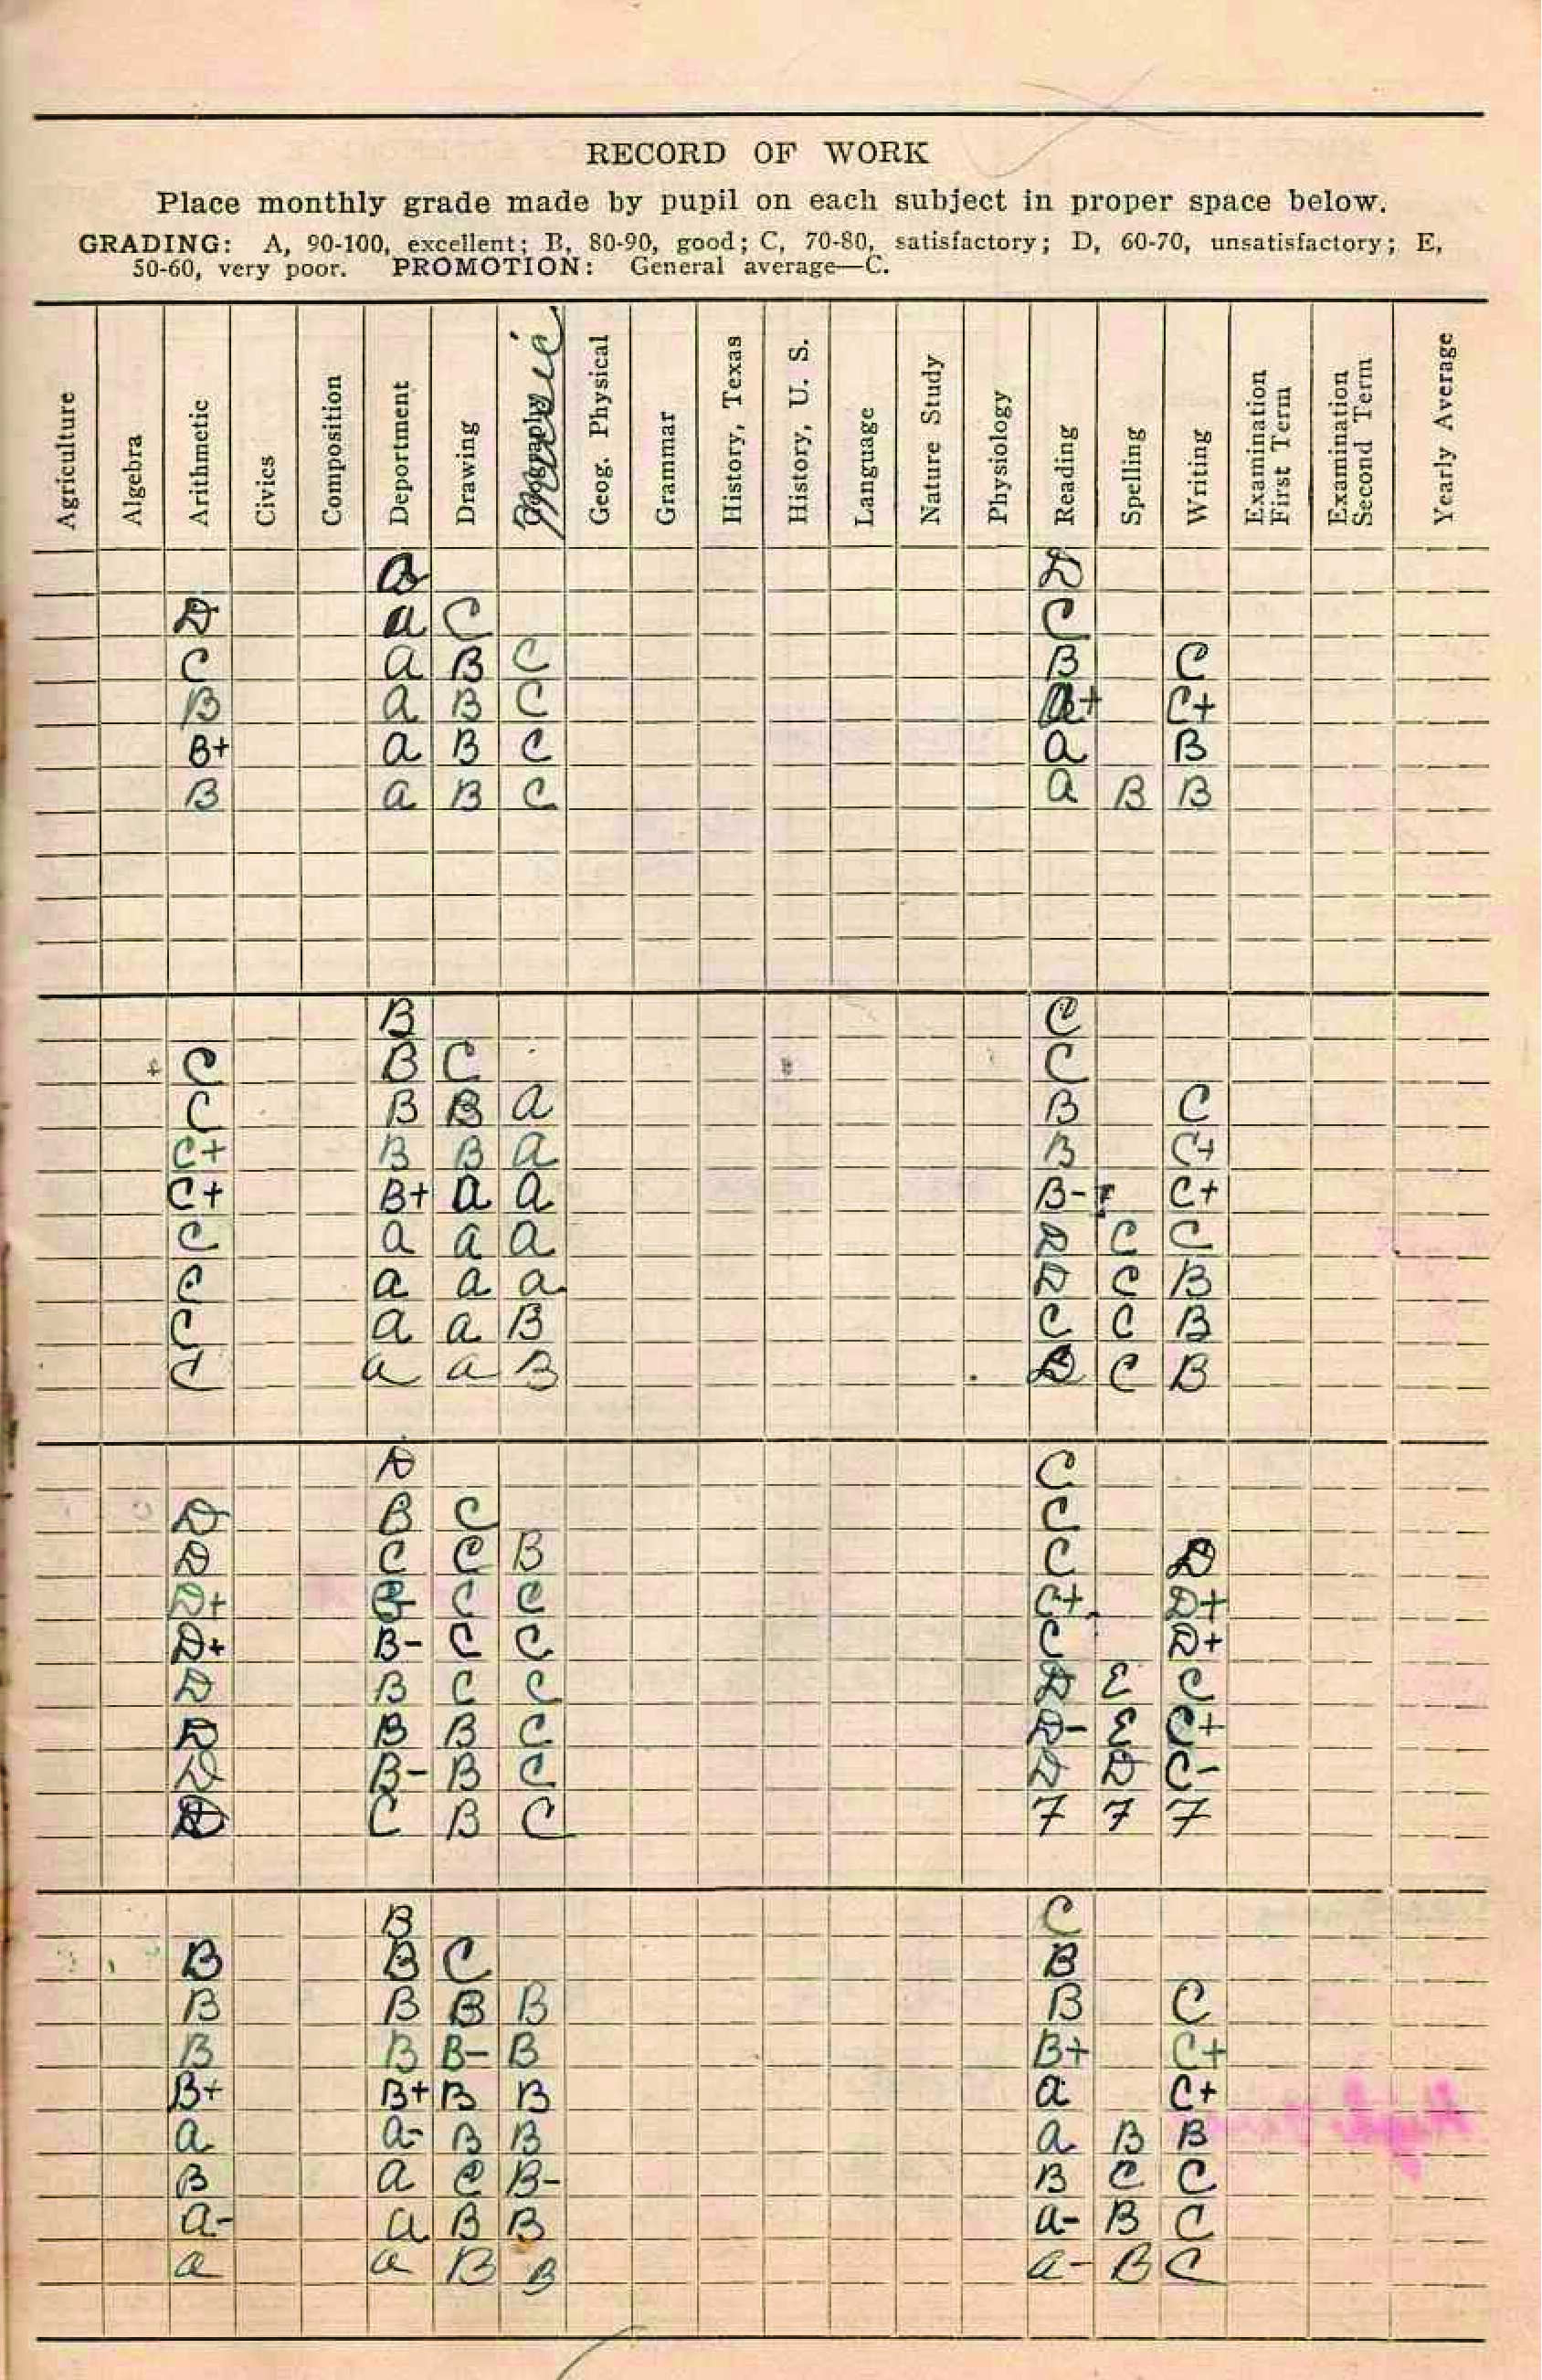 RECORD OF WORK
Place monthly grade made by pupil on each subject in proper space below.
GRADING: A, 90-100, excellent; B, 80-90, good; C, 70-80, satisfactory; D, 60-70, unsatisfactory; E,
50-60, very poor. PROMOTION: General average—C.
Agriculture Algebra Arithmetic Civics Composition Department Drawing Music Geog. Physical Grammar History, Texas History, U. S. Language Nature Study Physiology Reading Spelling Writing Examination First Term Examination Second Term Yearly Average
B D
D a C C
C a B C B C
B a B C A+ C+
B+ a B C a B
B a B C a B B
B C
C B C C
C B B a B C
C+ B B a B C+
C+ B+ a a B- C+
C a a a D C C
C a a a D C B
C a a B C C B
C a a B D C B
D C
D B C C
D C C B C D
D+ B- C C C+ D+
D+ B- C C C D+
D B C C D E C
D B B C D- E C+
D B- B C D D C-
D C B C 7 7 7
B C
B B C B
B B B B B C
B B B- B B+ C+
B+ B+ B B a C+
a a- B B a B B
B a C B- B C C
a- a B B a- B C
a a B B a- B C